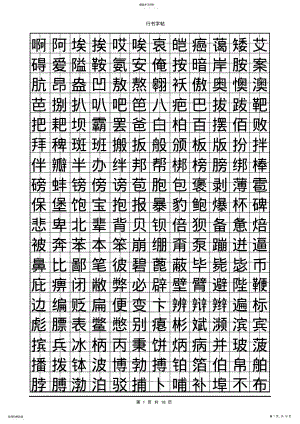 行书字帖
啊阿埃挨哎唉哀皑癌蔼矮艾
碍爱隘鞍氨安俺按暗岸胺案
肮昂盎凹敖熬翱袄傲奥懊澳
芭捌扒叭吧笆八疤巴拔跋靶
把耙坝霸罢爸白柏百摆佰败
拜稗斑班搬扳般颁板版扮拌
伴瓣半办绊邦帮梆榜膀绑棒
磅蚌镑傍谤苞胞包褒剥薄雹
保堡饱宝抱报暴豹鲍爆杯碑
悲卑北辈背贝钡倍狈备惫焙
被奔苯本笨崩绷甭泵蹦迸逼
鼻比鄙笔彼碧蓖蔽毕毙毖币
庇痹闭敝弊必辟壁臂避陛鞭
边编贬扁便变卞辨辩辫遍标
彪膘表鳖憋别瘪彬斌濒滨宾
摈兵冰柄丙秉饼炳病并玻菠
播拨钵波博勃搏铂箔伯帛舶
脖膊渤泊驳捕卜哺补埠不布